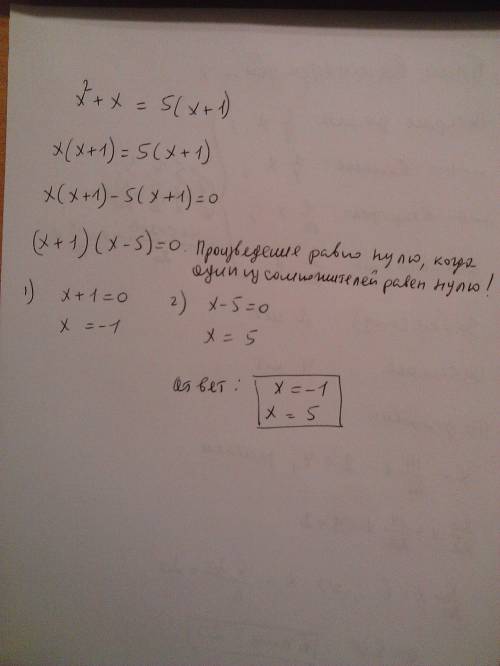 x² + x = 5(x+1)
x(x+1) = 5(x+1)
x(x+1) - 5(x+1) = 0
(x+1)(x-5) = 0. Произведение равно нулю, когда
один из сомножителей равен нулю!
1) x+1=0 2) x-5=0
x = -1 x = 5
ответ: x = -1
x = 5